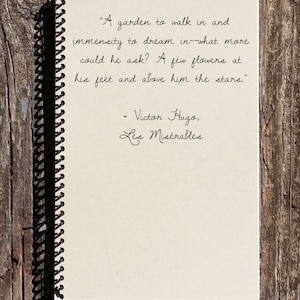 "A garden to walk in and
immensity to dream in--what more
could he ask? A few flowers at
his feet and above him the stars."
- Victor Hugo,
Les Misérables